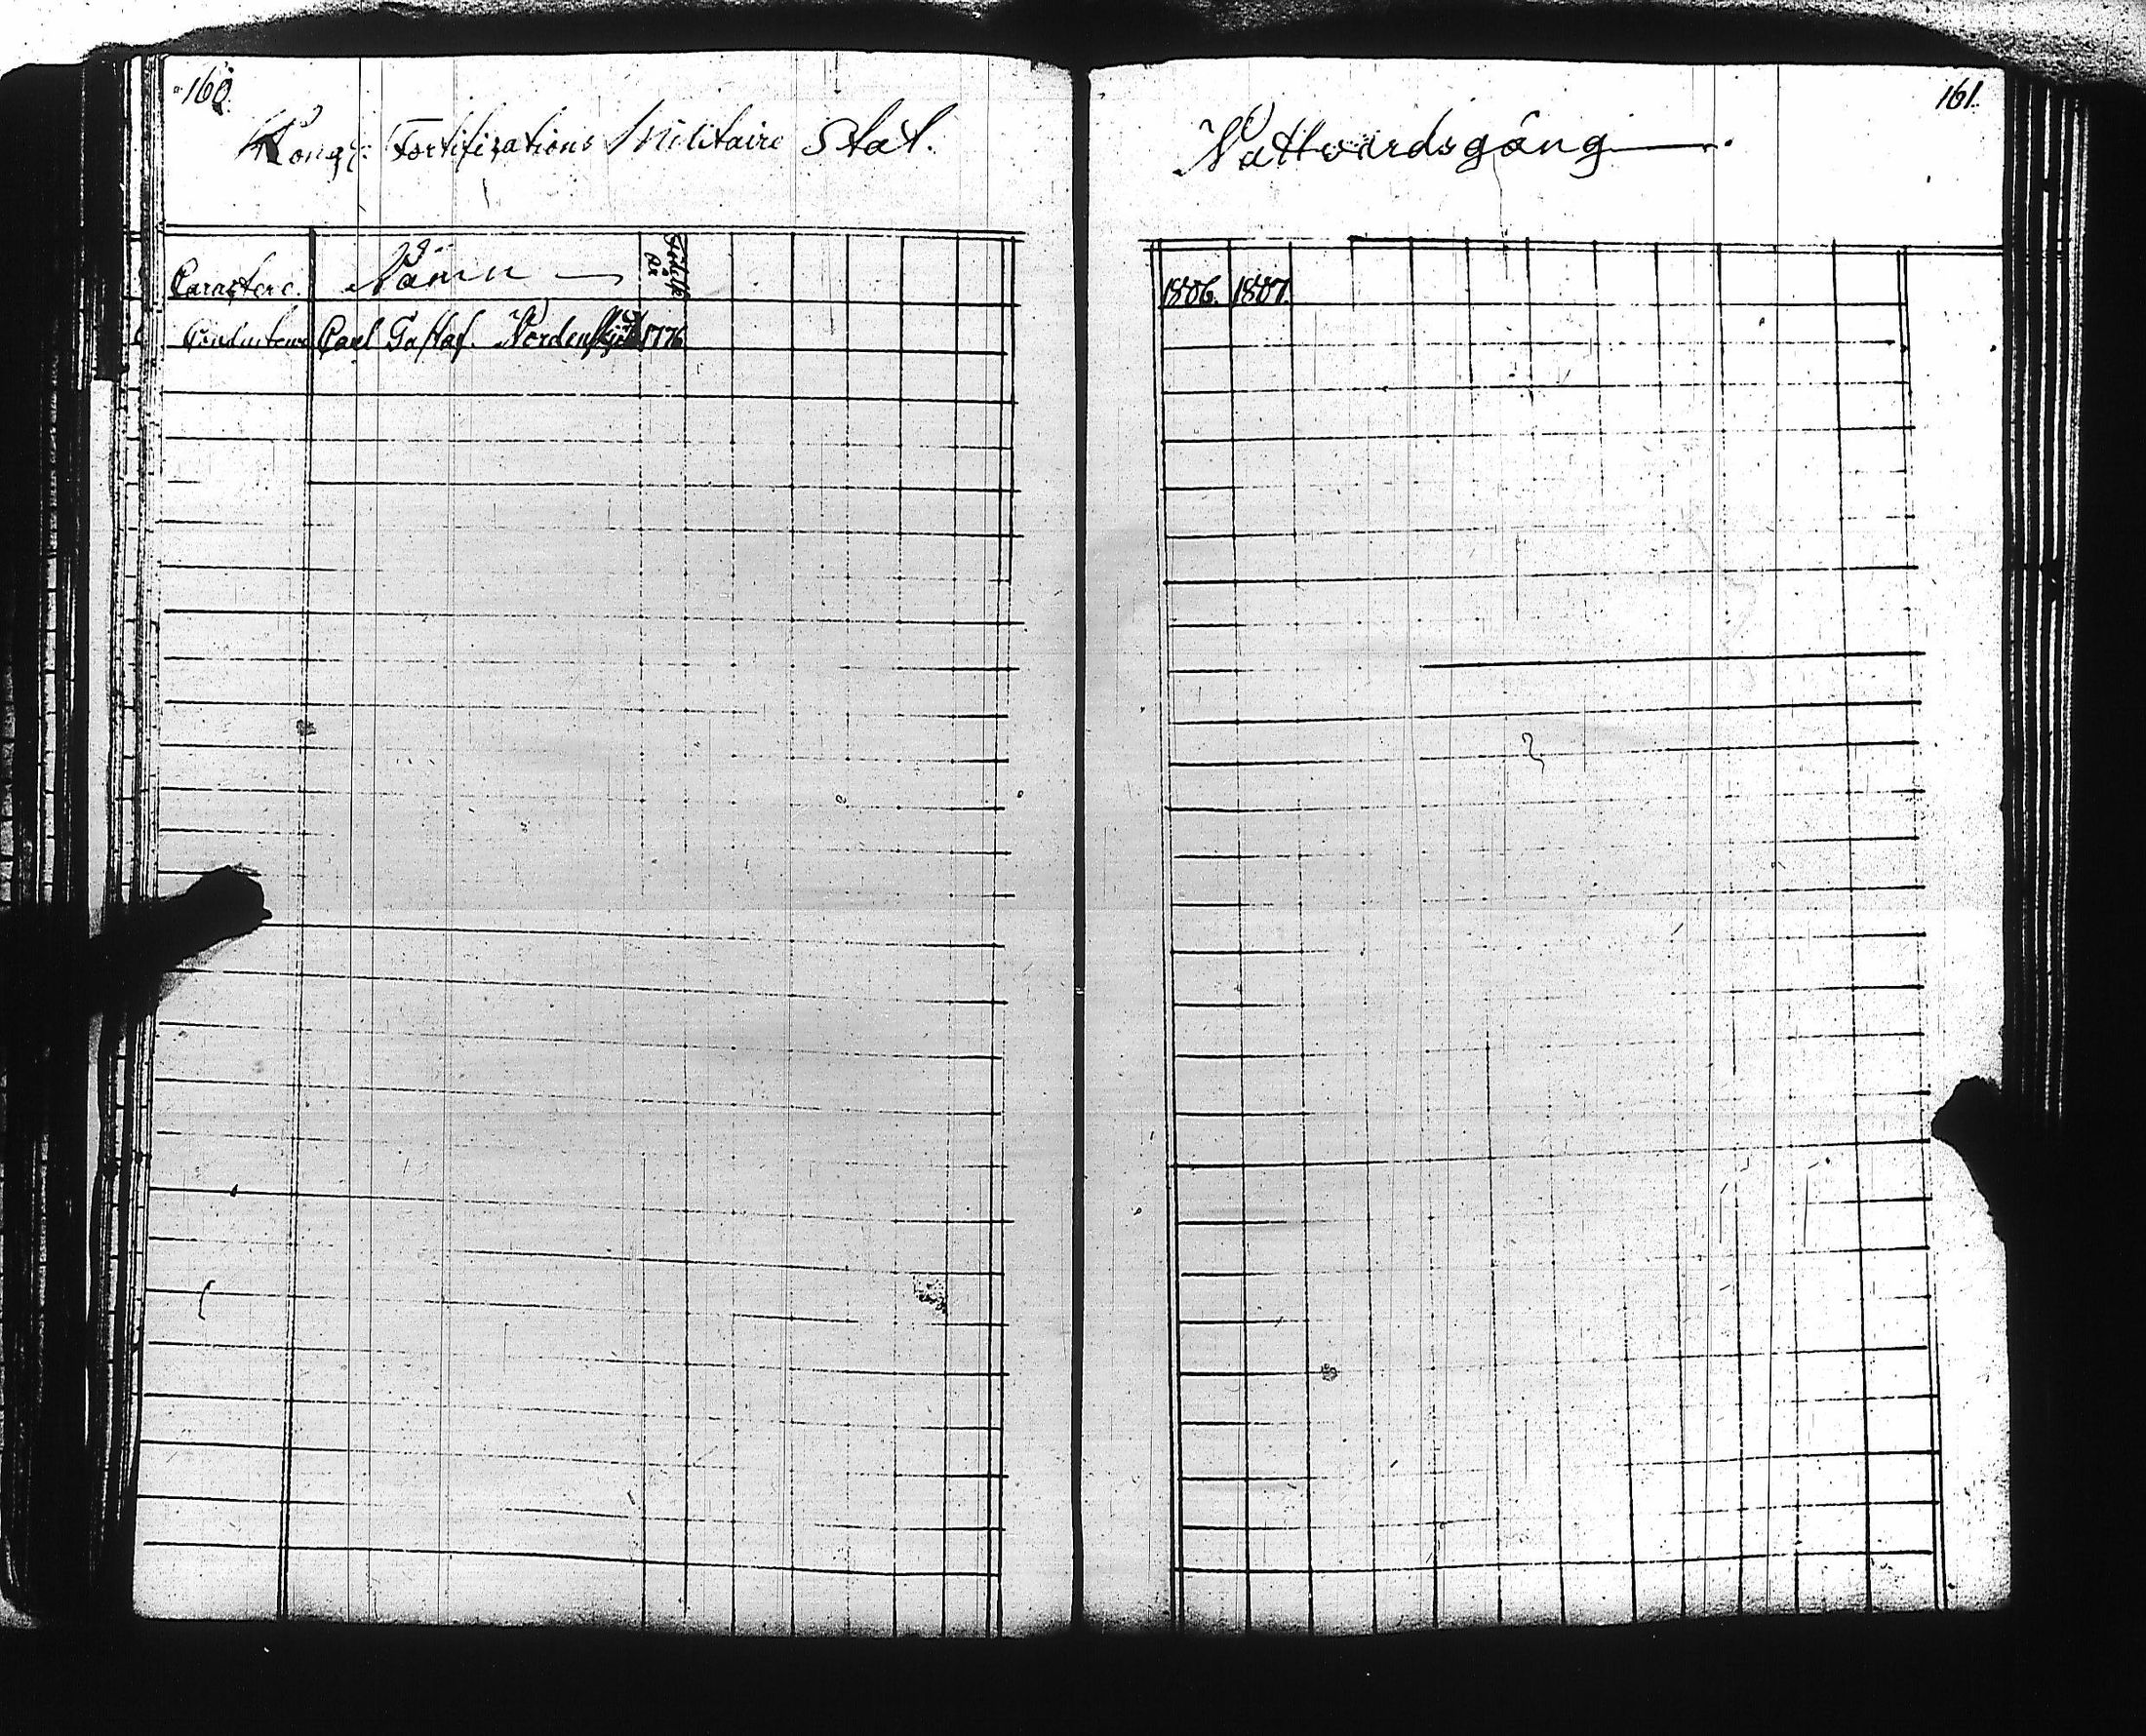 160
Kongl: Fortifications Militaire Stat.
Caractere. Namn Födelse År
Conducteur Carl Gustaf. 1776
161.
Nattvardsgång
1806. 1807.